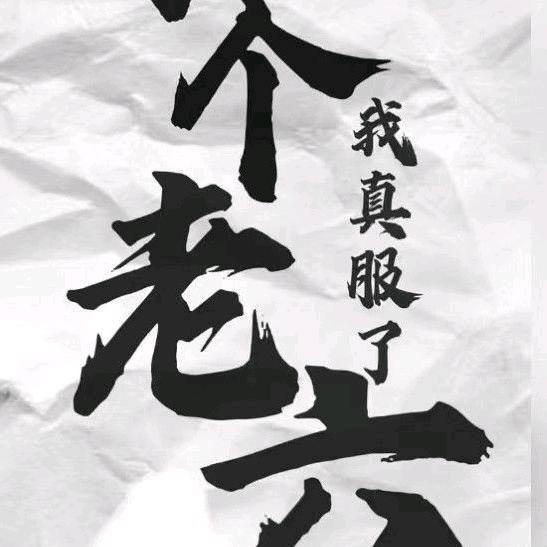 个老六
我真服了